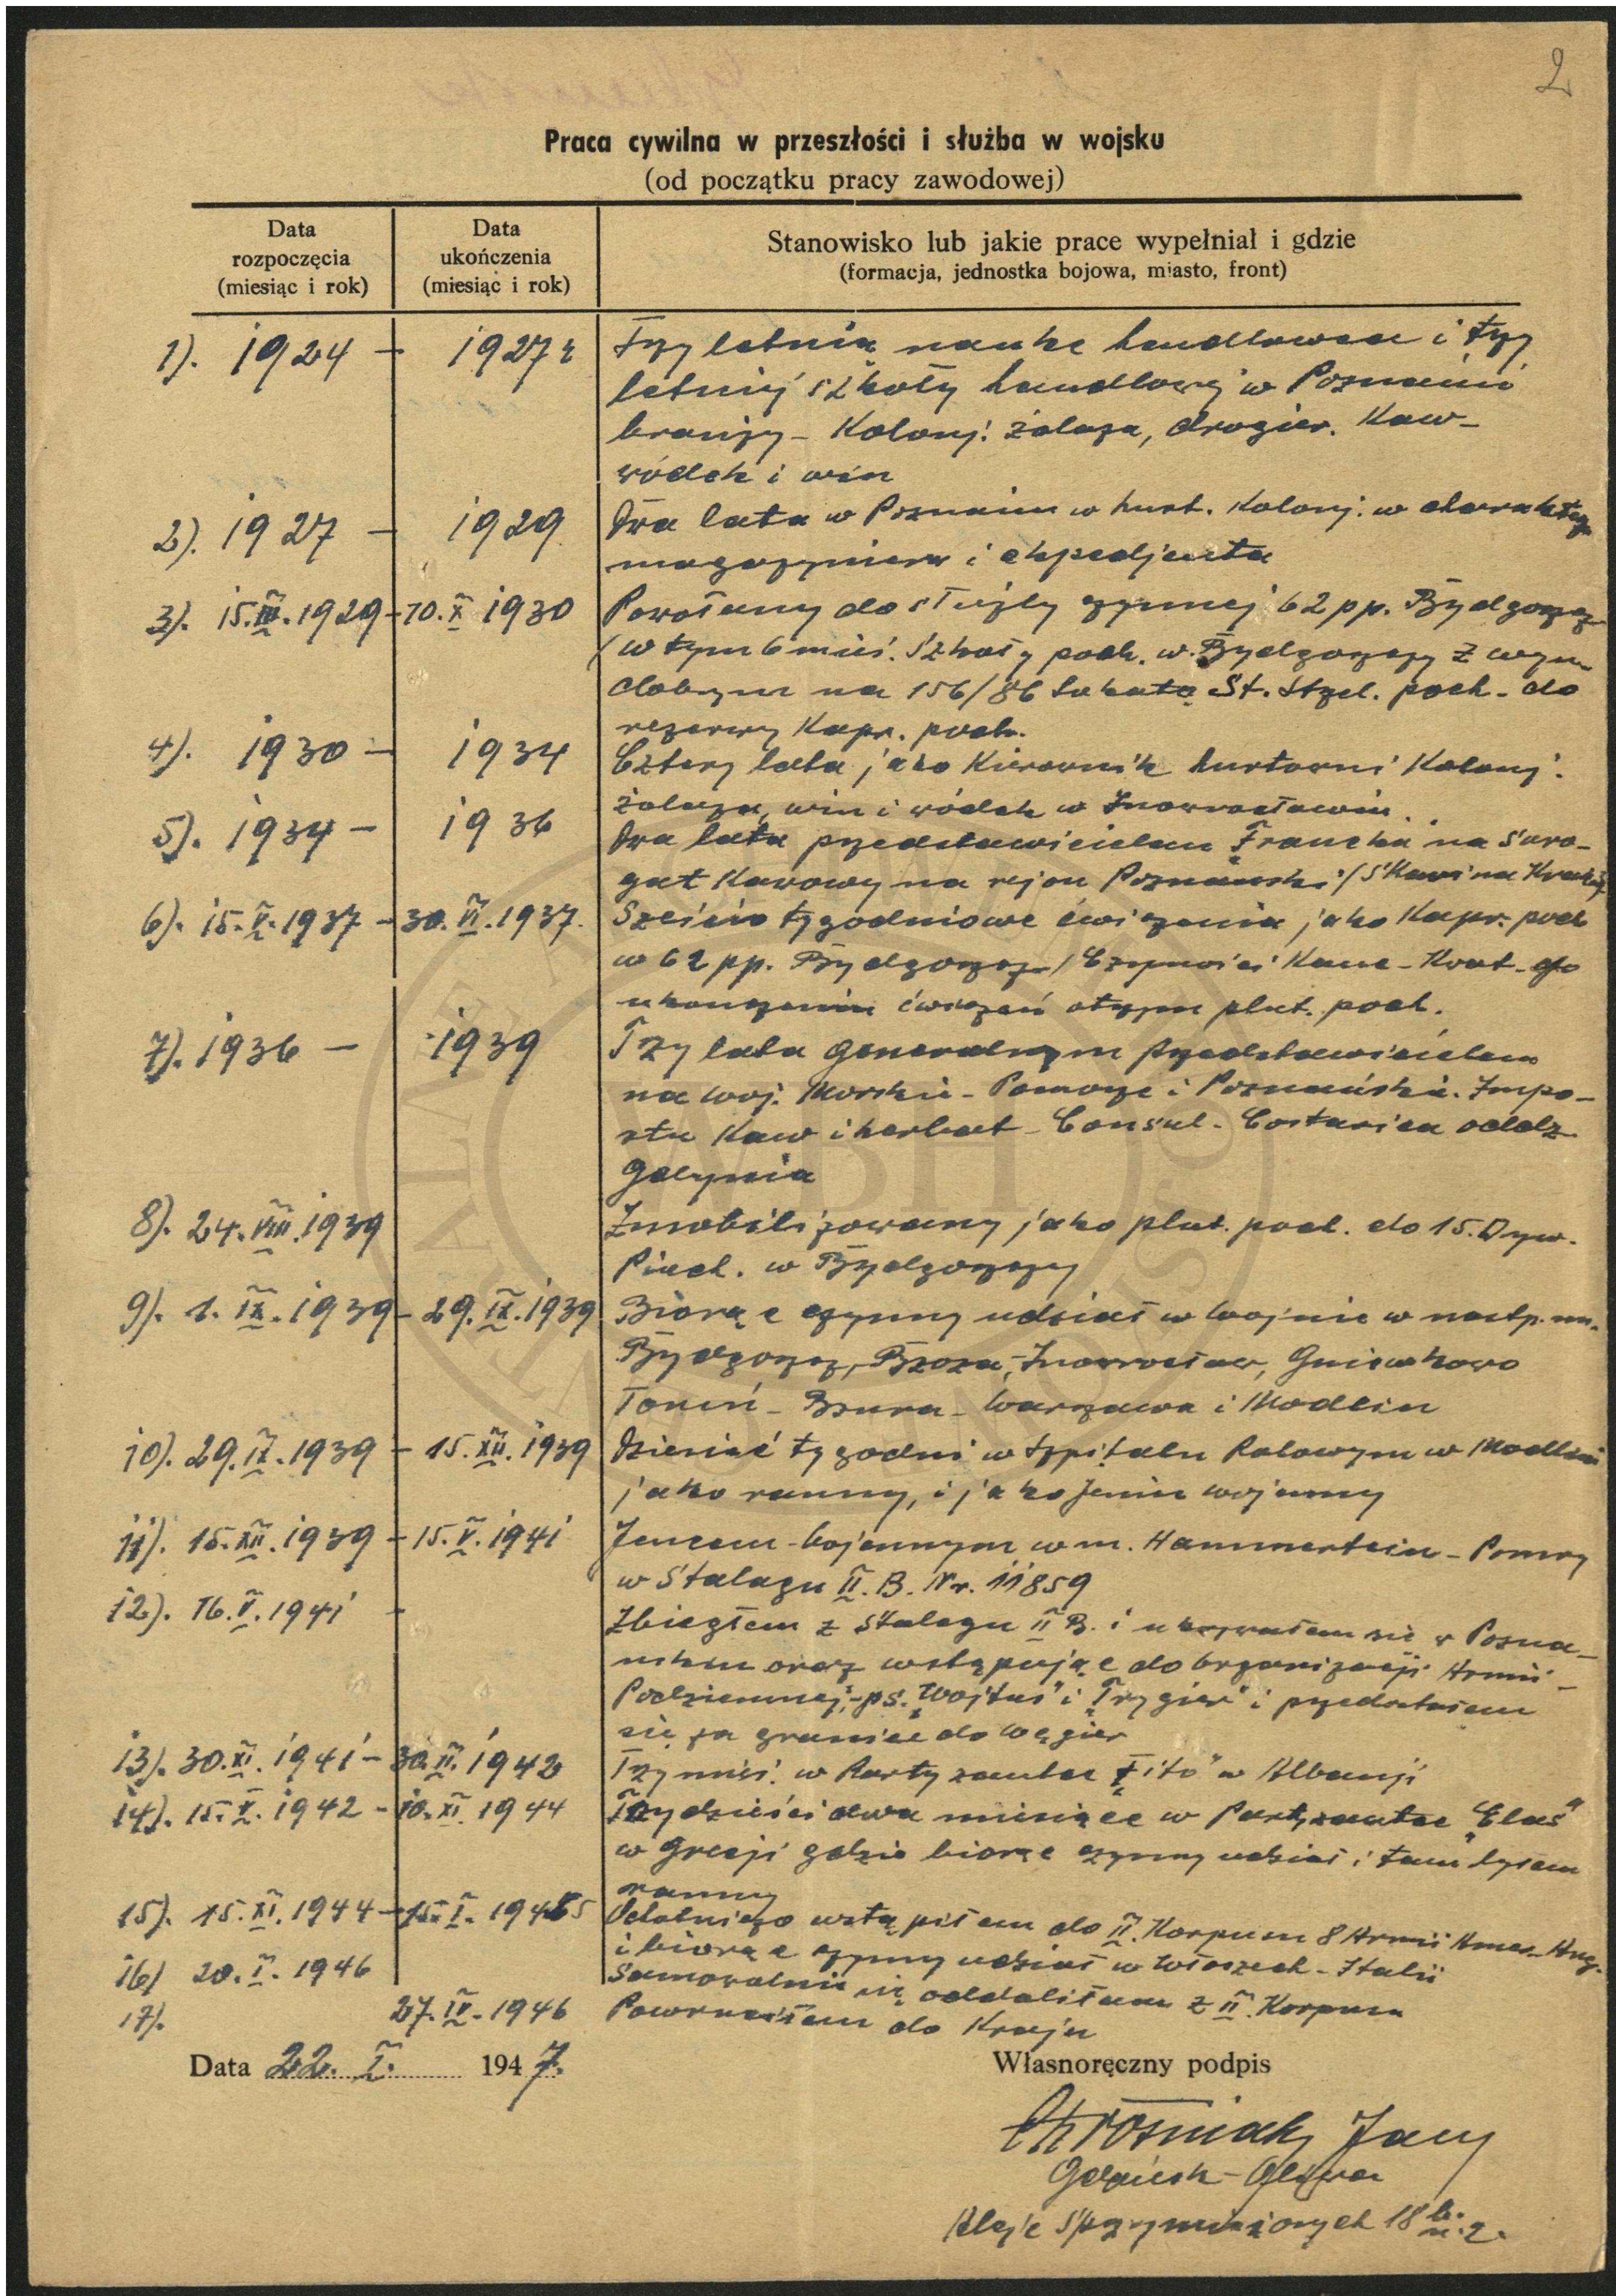 2
Praca cywilna w przeszłości i służba w wojsku
(od początku pracy zawodowej)
Data rozpoczęcia (miesiąc i rok)
Data ukończenia (miesiąc i rok)
Stanowisko lub jakie prace wypełniał i gdzie
(formacja, jednostka bojowa, miasto, front)
1). 1924 - 1927 r Trzy letnią naukę handlowea i trzy
letniej szkoły handlowej w Poznaniu
branży - Kolonj. żelaza, drogier. Kaw-
wódek i win
2). 1927 - 1929 Dwa lata w Poznaniu w hurt. Kolonj. w charakterze
magazyniera i ekspedjenta
3). 15.III.1929 - 10.X 1930 Powołany do służby czynnej 62 pp. Bydgoszcz
(w tym 6 mieś. Szkoły podch. w Bydgoszczy z wyn.
dobrym na 156/86 lokatą St. Strzel. podch. do
rezerwy Kapr. podch.
4). 1930 - 1934 Cztery lata jako Kierownik hurtowni Kolonj.
żelaza, win i wódek w Inowrocławiu.
5). 1934 - 1936 Dwa lata przedstawicielem Francka na suro-
gat Kawowy na rejon Poznański (Skawina Kraków
6). 15.V.1937 - 30.VI.1937. Sześcio tygodniowe ćwiczenia jako Kapr. podch
w 62 pp. Bydgoszcz
ukonczeniu ćwiczeń otrzym plut. podch.
7). 1936 - 1939 Trzy lata generalnym przedstawicielem
na woj. Morskie - Pomorze i Poznańskie. Impo-
rtu Kaw i herbat - Consul - Costarica oddz.
Gdynia
8). 24.VIII.1939 Zmobilizowany jako plut. podch. do 15. Dyw.
Piech. w Bydgoszczy
9). 1.IX.1939 - 29.IX.1939 Biorąc czynny udział w Wojnie w nastp. m.
Bydgoszcz, Brzoza, Inowrocław, Gniewkowo
Toruń - Bzura - Warszawa i Modlin
10). 29.IX.1939 - 15.XII.1939 Dziesięć tygodni w szpitalu Polowym w Modlinie
jako ranny, i jako Jeniec wojenny
11). 15.XII.1939 - 15.V.1941 Jencem Wojennym w m. Hammerstein - Pomrz
w Stalagu II. B. Nr. 11859
12). 16.V.1941 - Zbiegłem z Stalagu II B. i ukrywałem się w Pozna-
niskim oraz wstępując do Organizacji Armii -
Podziemnej - ps. "Wojtuś" i "Trygier" i przedostałem
się za granice do Węgier
13). 30.XI.1941 - 30.II.1942 Trzy mieś. w Partyzantce "Tito" w Albanji
14). 15.V.1942 - 10.XI.1944 Trzydzieści dwa miesiące w Partyzantce "Elas"
w Grecji gdzie biorąc czynny udział i tam byłem
ranny
15). 15.XI.1944 - 15.I.1945 wstąpiłem do II. Korpusu 8 Armii Amer-Ang.
i biorąc czynny udział w Włoszech - Italii
16) 20.I.1946 Samowolnie się oddaliłem z II. Korpusu
17). 27.IV.1946 Powróciłem do Kraju
Data 22. I. 1947.
Własnoręczny podpis
Chrośniak Jany
Gdańsk - Oliwa
Aleje Sprzymierzonych 18 b. m. 2.